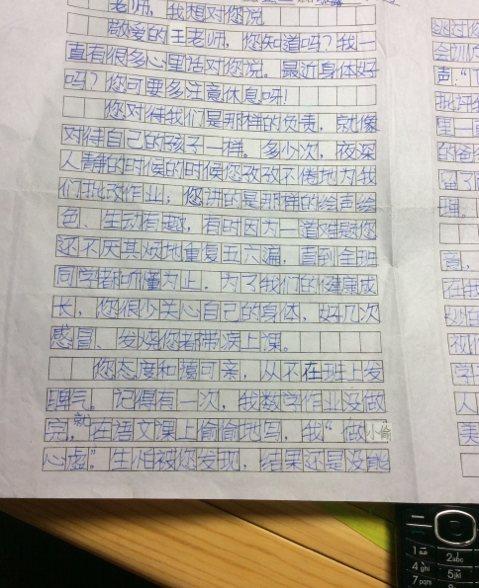 老师，我想对您说
敬爱的王老师，您知道吗？我一
直有很多心里话对您说。最近身体好
吗？您可要多注意休息呀！
您对待我们是那样的负责，就像
对待自己的孩子一样。多少次，夜深
人静的时候的时候您孜孜不倦地为我
们批改作业；您讲的是那样的绘声绘
色、生动有趣，有时因为一道难题您
还不厌其烦地重复五六遍，直到全班
同学都听懂为止，为了我们的健康成
长，您很少关心自己的身体，好几次
感冒、发烧您都带病上课。
您态度和蔼可亲，从不在班上发
脾气。记得有一次，我数学作业没做
完，就在语文课上偷偷地写，我“做小偷
心虚”生怕被您发现，结果还是没能
声
批评我
里一直
的爸
意，
在我
妙的
人
美
1
2abc
4ghi
5jkl
7pqrs